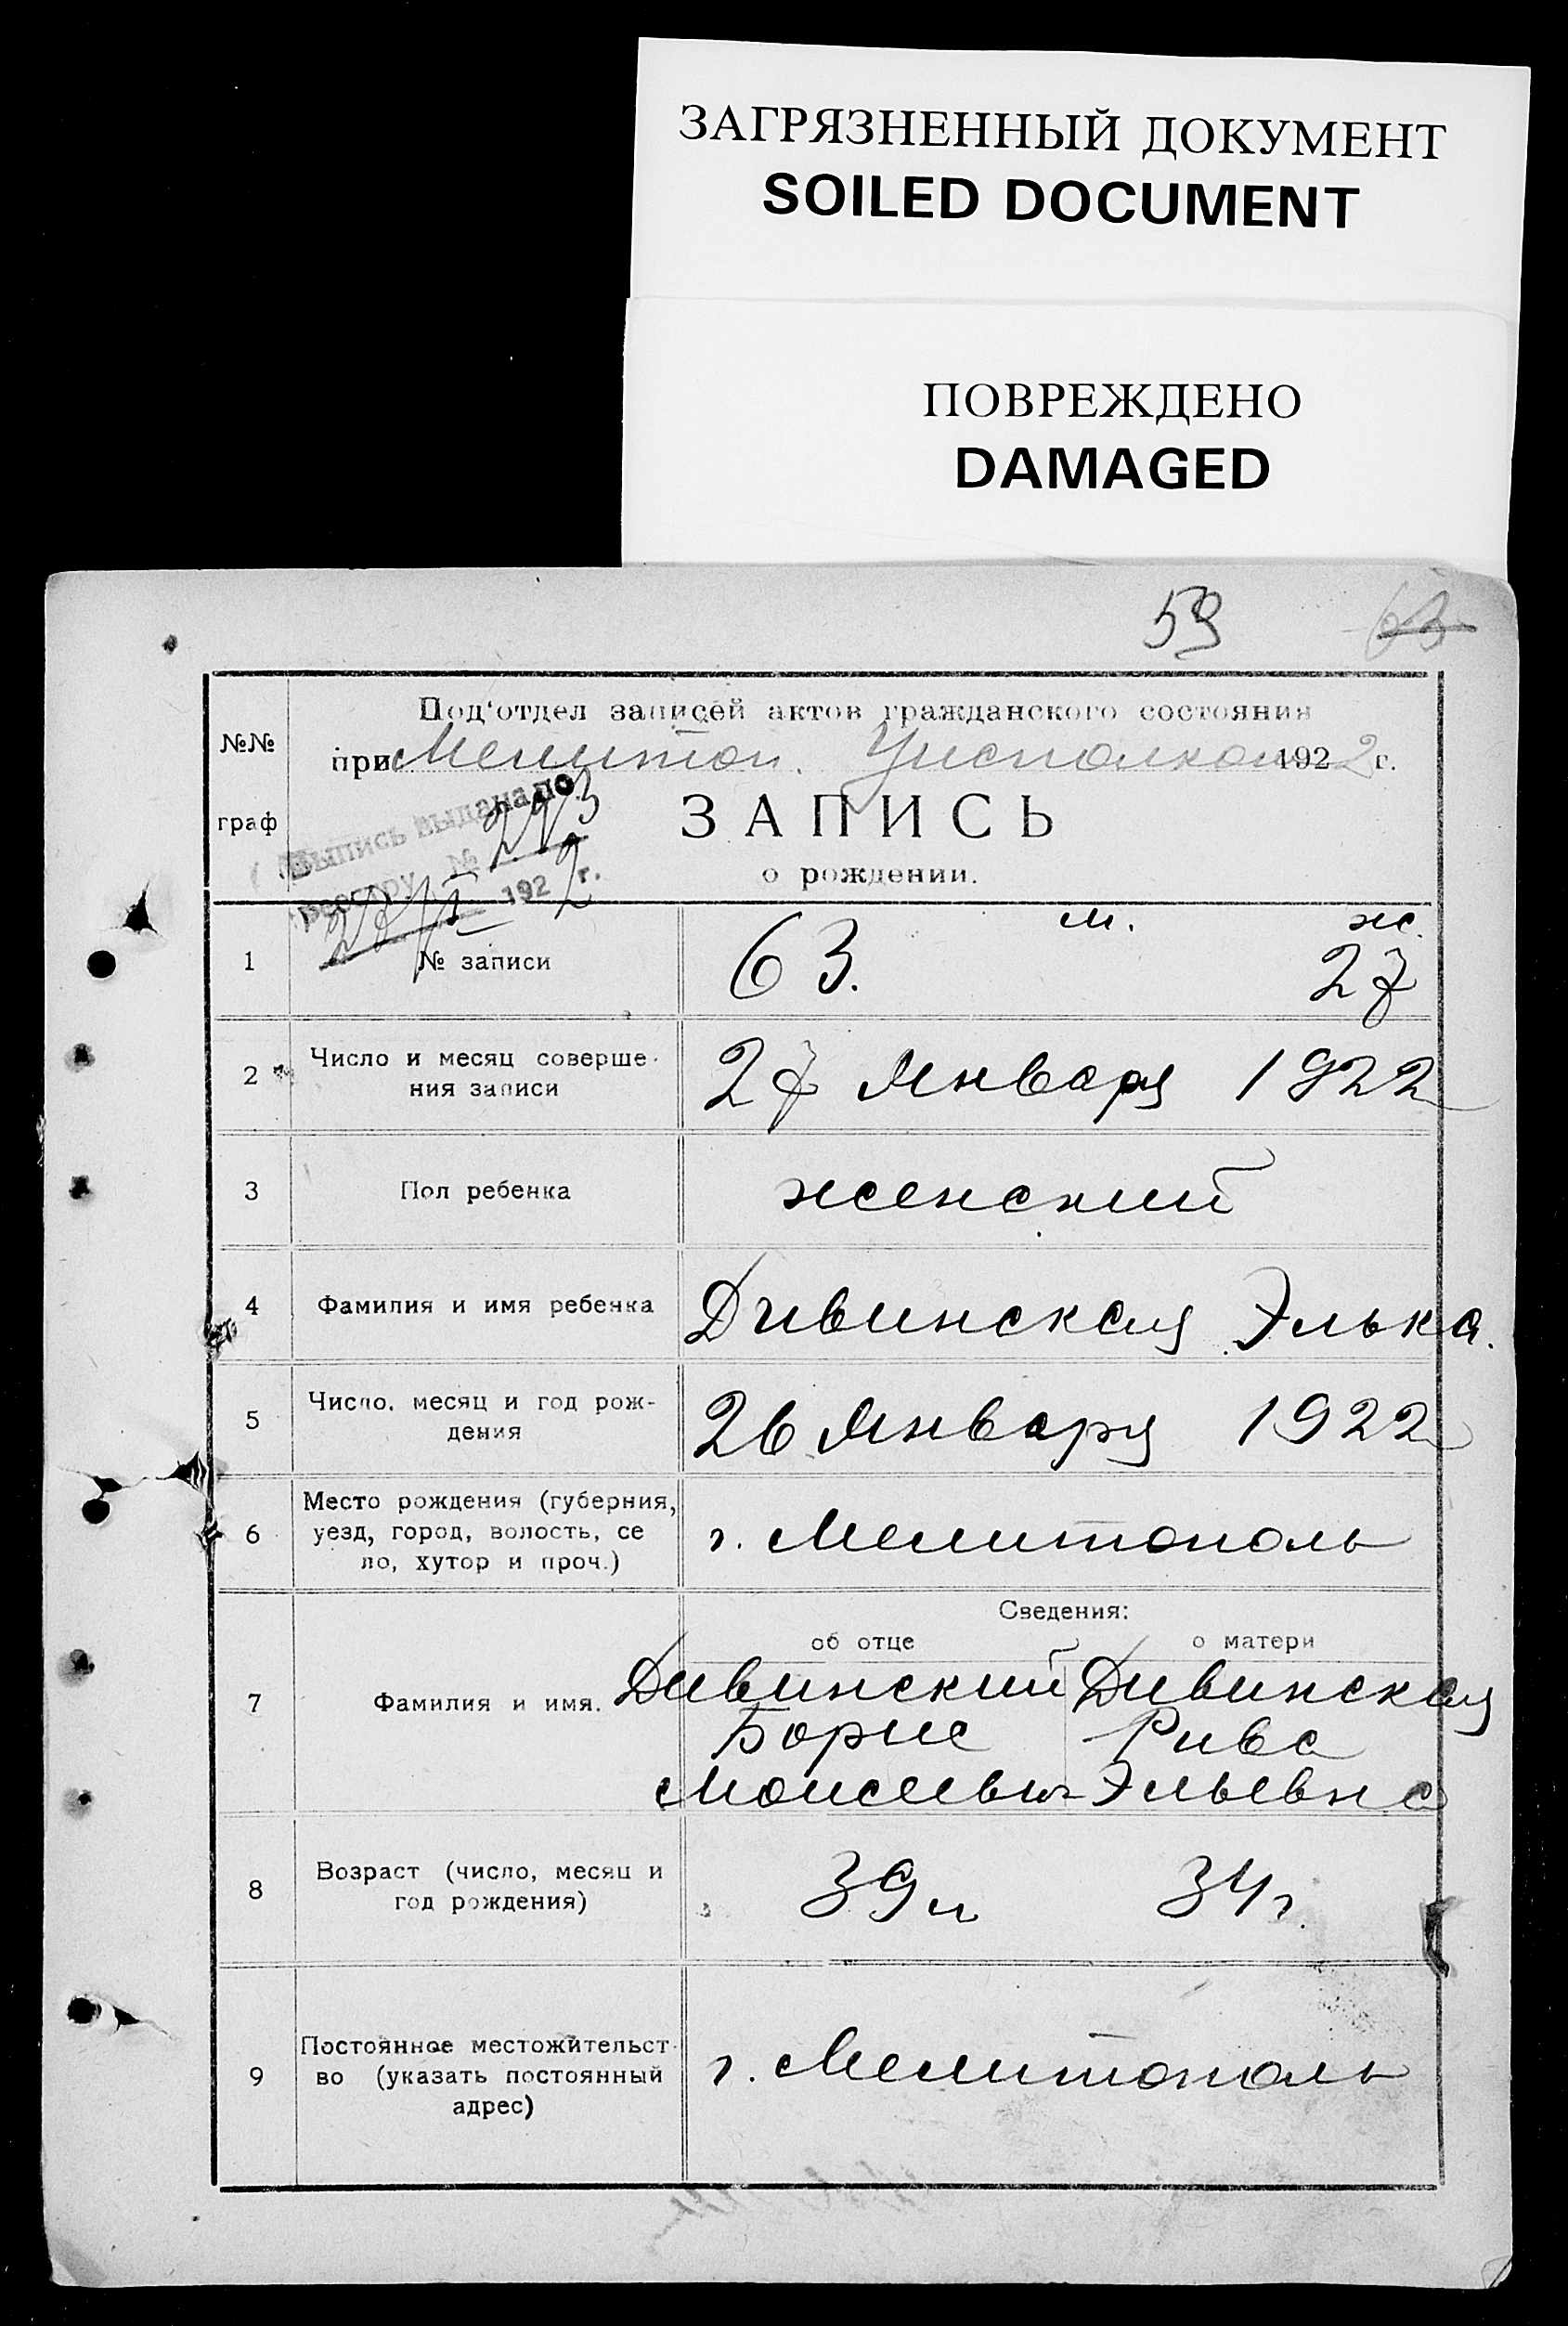 ЗАГРЯЗНЕННЫЙ ДОКУМЕНТ
SOILED DOCUMENT
ПОВРЕЖДЕНО
DAMAGED
59 63
№№ граф
Под'отдел записей актов гражданского состояния
при Мелитоп. Уисполком 1922 г.
Выпись выдана по
реестру № 273
1922 г.
ЗАПИСЬ
о рождении.
м. ж.
1 № записи 63. 27
2 Число и месяц соверше-
ния записи
27 Января 1922
3 Пол ребенка женский
4 Фамилия и имя ребенка Дивинская Элька.
5 Число, месяц и год рож-
дения
26 Января 1922
6 Место рождения (губерния,
уезд, город, волость, се
ло, хутор и проч.)
г. Мелитополь
Сведения:
об отце о матери
7 Фамилия и имя. Дивинский Дивинская
Борис Рива
Моисеевич Эльевна
8 Возраст (число, месяц и
год рождения)
39 л 34 г.
9 Постоянное местожительст-
во (указать постоянный
адрес)
г. Мелитополь